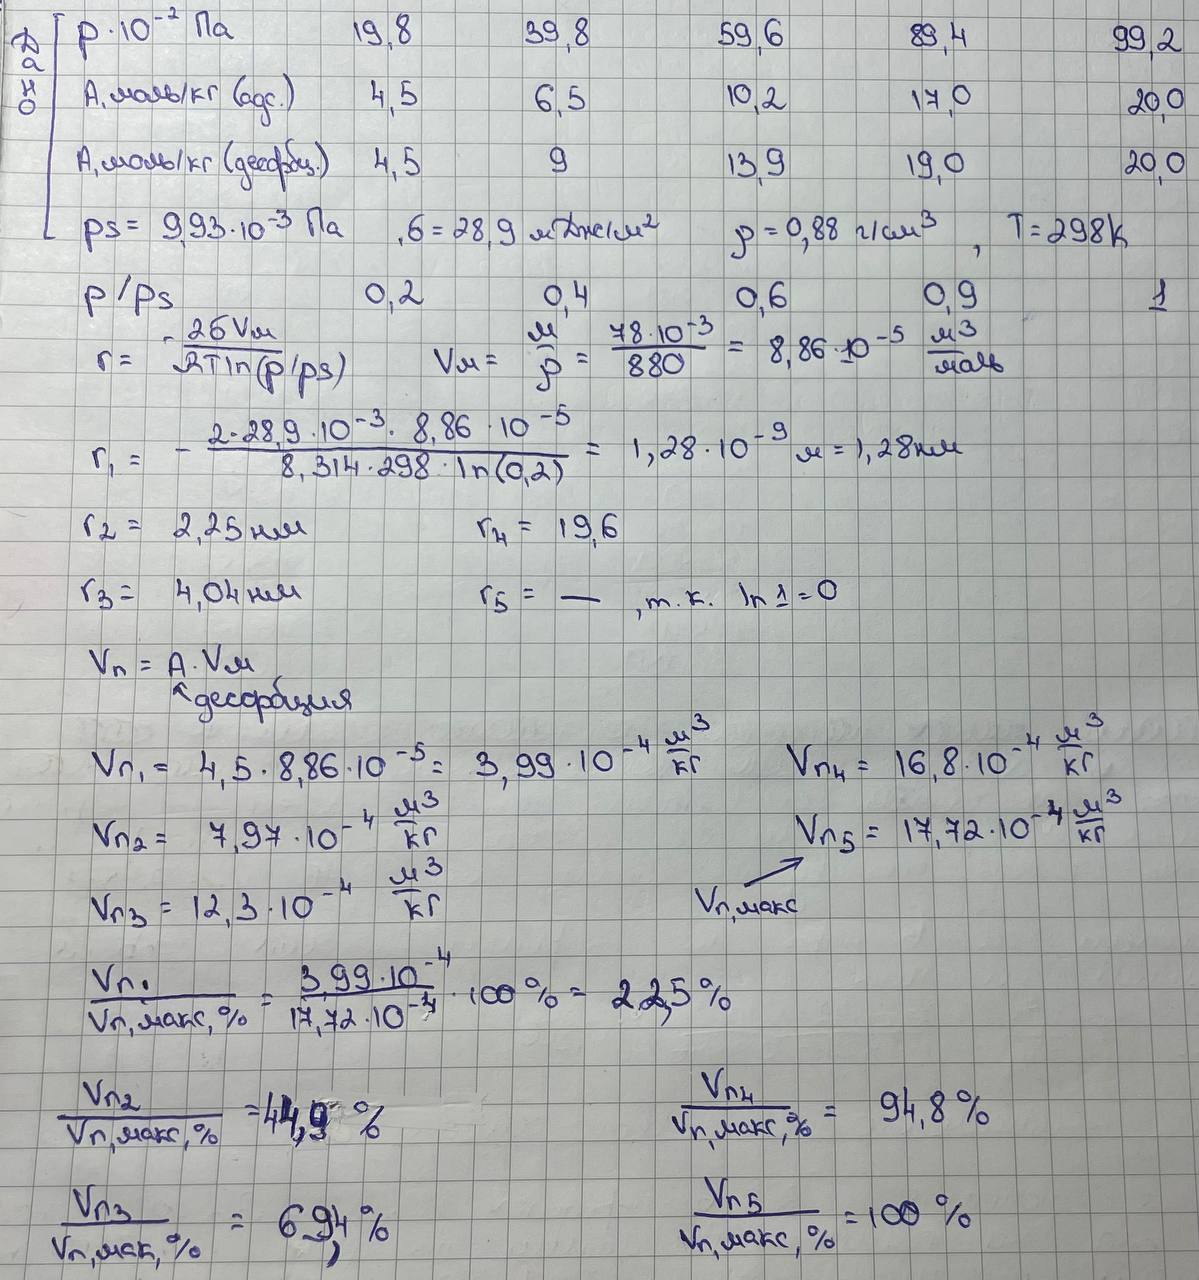 Дано
p·10⁻² Па 19,8 39,8 59,6 89,4 99,2
A, моль/кг (адс.) 4,5 6,5 10,2 17,0 20,0
A, моль/кг (десорбц.) 4,5 9 13,9 19,0 20,0
ps = 9,93·10⁻³ Па , б = 28,9 мДж/м² ρ = 0,88 г/см³ , T = 298К
p/ps 0,2 0,4 0,6 0,9 1
r = - 2бVм / RT ln(p/ps) Vм = м/ρ = 78·10⁻³ / 880 = 8,86·10⁻⁵ м³/моль
r₁ = - 2·28,9·10⁻³·8,86·10⁻⁵ / 8,314·298·ln(0,2) = 1,28·10⁻⁹ м = 1,28нм
r₂ = 2,25нм r₄ = 19,6
r₃ = 4,04нм r₅ = — , т.к. ln 1 = 0
Vп = A·Vм
десорбция
Vп₁ = 4,5·8,86·10⁻⁵ = 3,99·10⁻⁴ м³/кг Vп₄ = 16,8·10⁻⁴ м³/кг
Vп₂ = 7,97·10⁻⁴ м³/кг Vп₅ = 17,72·10⁻⁴ м³/кг
Vп₃ = 12,3·10⁻⁴ м³/кг Vп,макс
Vп₁ / Vп,макс,% = 3,99·10⁻⁴ / 17,72·10⁻⁴ · 100% = 22,5%
Vп₂ / Vп,макс,% = 44,9% Vп₄ / Vп,макс,% = 94,8%
Vп₃ / Vп,мак,% = 69,4% Vп₅ / Vп,макс,% = 100%